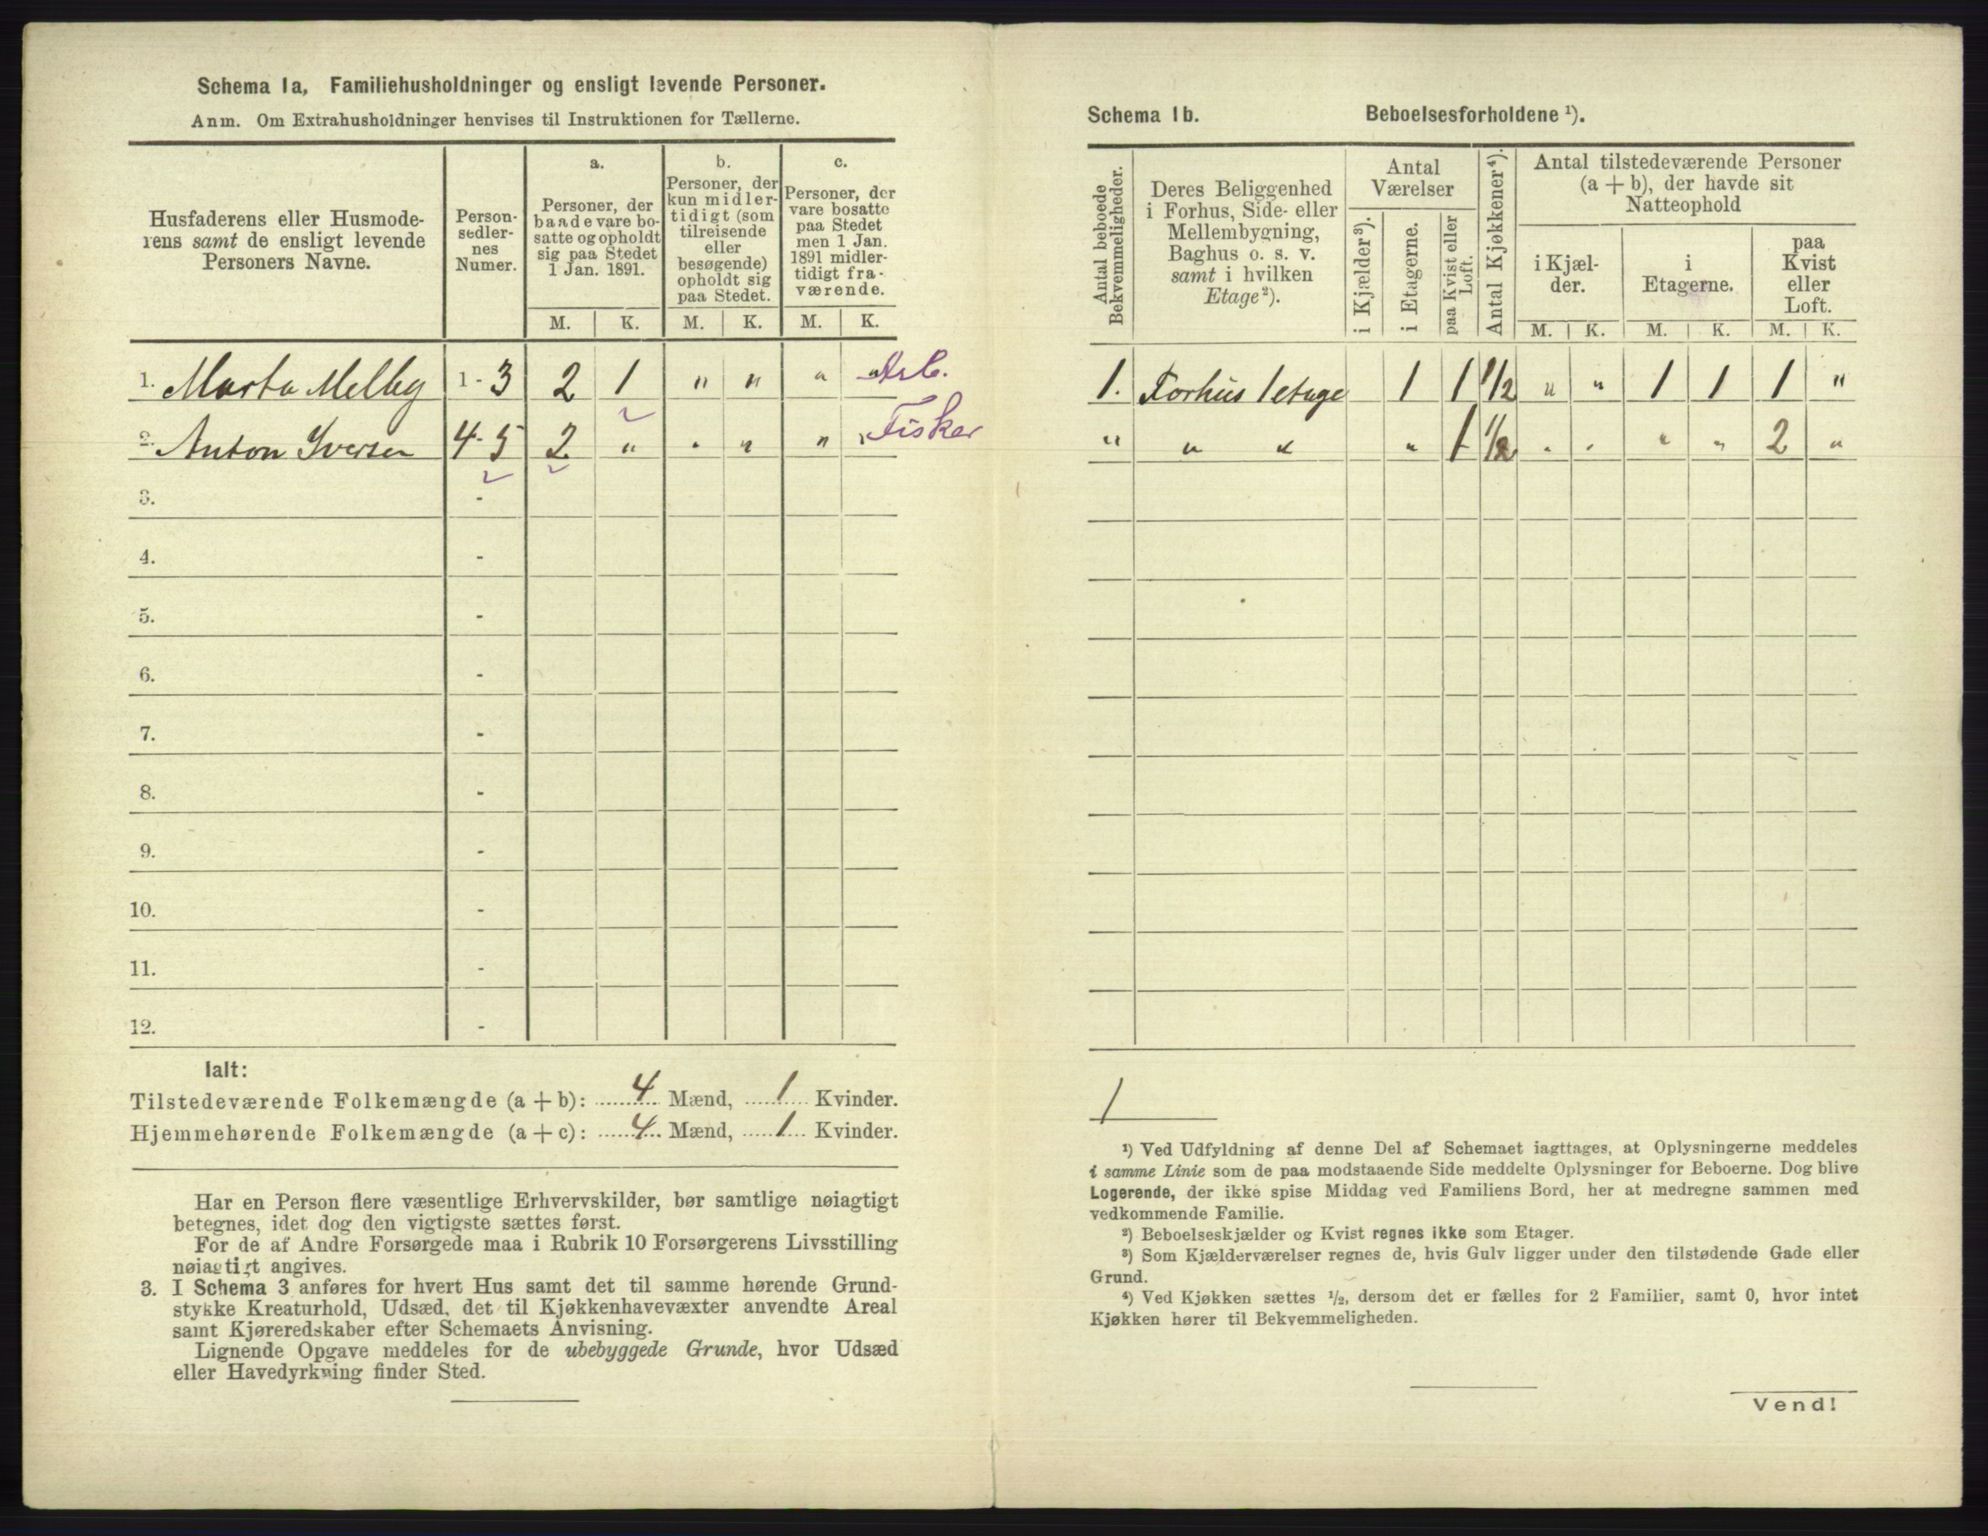 Schema 1a, Familiehusholdninger og ensligt levende Personer.
Anm. Om Extrahusholdninger henvises til Instruktionen for Tællerne.
Husfaderens eller Husmoderens samt de ensligt levende Personers Navne.
Personsedlernes Numer.
a.
Personer, der baade vare bosatte og opholdt sig paa Stedet 1 Jan. 1891.
b.
Personer, der kun midlertidigt (som tilreisende eller besøgende) opholdt sig paa Stedet.
c.
Personer, der vare bosatte paa Stedet men 1 Jan. 1891 midlertidigt fraværende.
M. K. M. K. M. K.
1. Marta Melby 1-3 2 1 " " " " Arb.
2. Anton Iversen 4-5 2 " " " " " Fisker
3. -
4. -
5. -
6. -
7. -
8. -
9. -
10. -
11. -
12. -
Ialt:
Tilstedeværende Folkemængde (a + b): 4 Mænd, 1 Kvinder.
Hjemmehørende Folkemængde (a + c): 4 Mænd, 1 Kvinder.
Har en Person flere væsentlige Erhvervskilder, bør samtlige nøiagtigt
betegnes, idet dog den vigtigste sættes først.
For de af Andre Forsørgede maa i Rubrik 10 Forsørgerens Livsstilling
nøiagtigt angives.
3. I Schema 3 anføres for hvert Hus samt det til samme hørende Grund-
stykke Kreaturhold, Udsæd, det til Kjøkkenhavevæxter anvendte Areal
samt Kjøreredskaber efter Schemaets Anvisning.
Lignende Opgave meddeles for de ubebyggede Grunde, hvor Udsæd
eller Havedyrkning finder Sted.
Schema 1b. Beboelsesforholdene ¹).
Antal beboede Bekvemmeligheder.
Deres Beliggenhed i Forhus, Side- eller Mellembygning, Baghus o. s. v. samt i hvilken Etage²).
Antal Værelser
i Kjælder³).
i Etagerne.
paa Kvist eller Loft.
Antal Kjøkkener⁴).
Antal tilstedeværende Personer (a + b), der havde sit Natteophold
i Kjælder.
i Etagerne.
paa Kvist eller Loft.
M. K. M. K. M. K.
1. Forhus 1 etage 1 1 1/2 " " 1 1 1 "
" " " " 1 1/2 " " " " 2 "
1
¹) Ved Udfyldning af denne Del af Schemaet iagttages, at Oplysningerne meddeles
i samme Linie som de paa modstaaende Side meddelte Oplysninger for Beboerne. Dog blive
Logerende, der ikke spise Middag ved Familiens Bord, her at medregne sammen med
vedkommende Familie.
²) Beboelseskjælder og Kvist regnes ikke som Etager.
³) Som Kjælderværelser regnes de, hvis Gulv ligger under den tilstødende Gade eller
Grund.
⁴) Ved Kjøkken sættes ½, dersom det er fælles for 2 Familier, samt 0, hvor intet
Kjøkken hører til Bekvemmeligheden.
Vend!